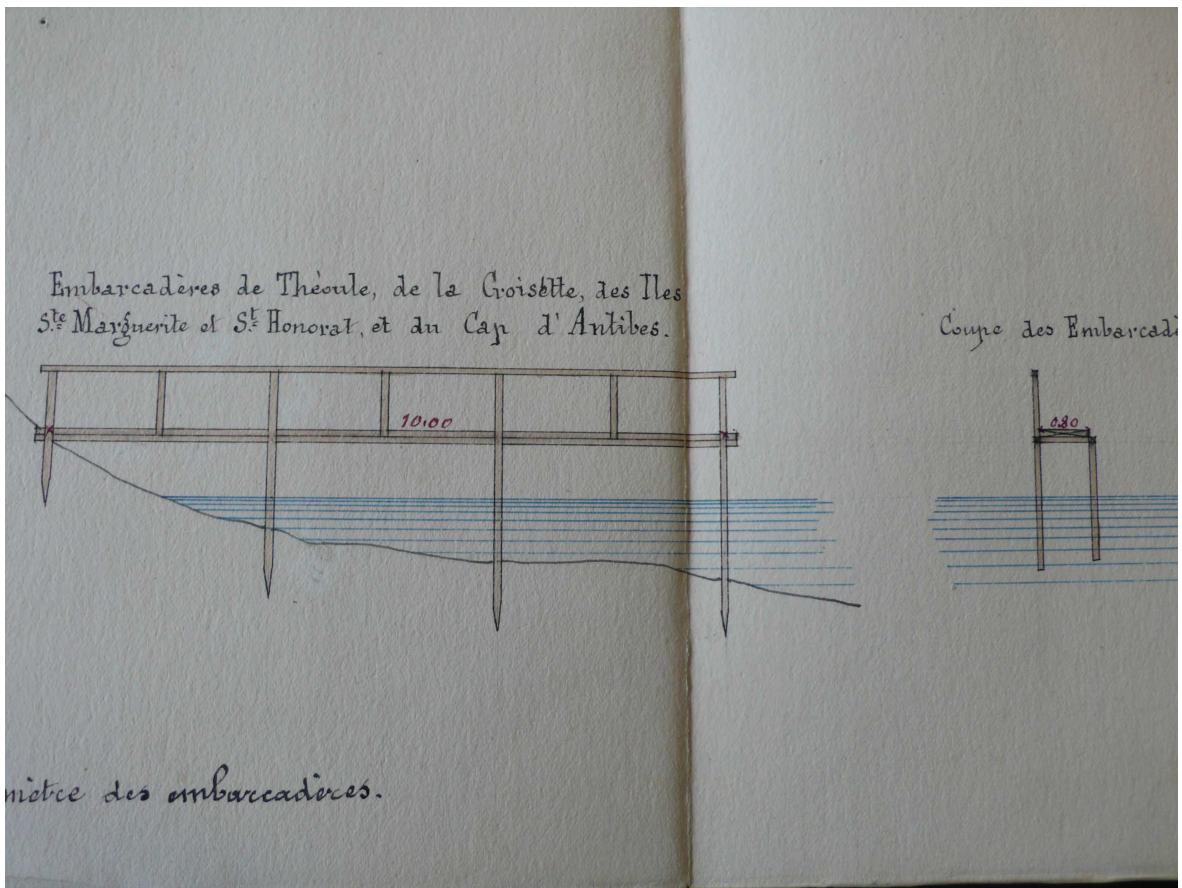 Embarcadères de Théoule, de la Croisette, des Iles
Ste Marguerite et St Honorat, et du Cap d'Antibes.
Coupe des Embarcadè
10.00
0.80
mètre des embarcadères.